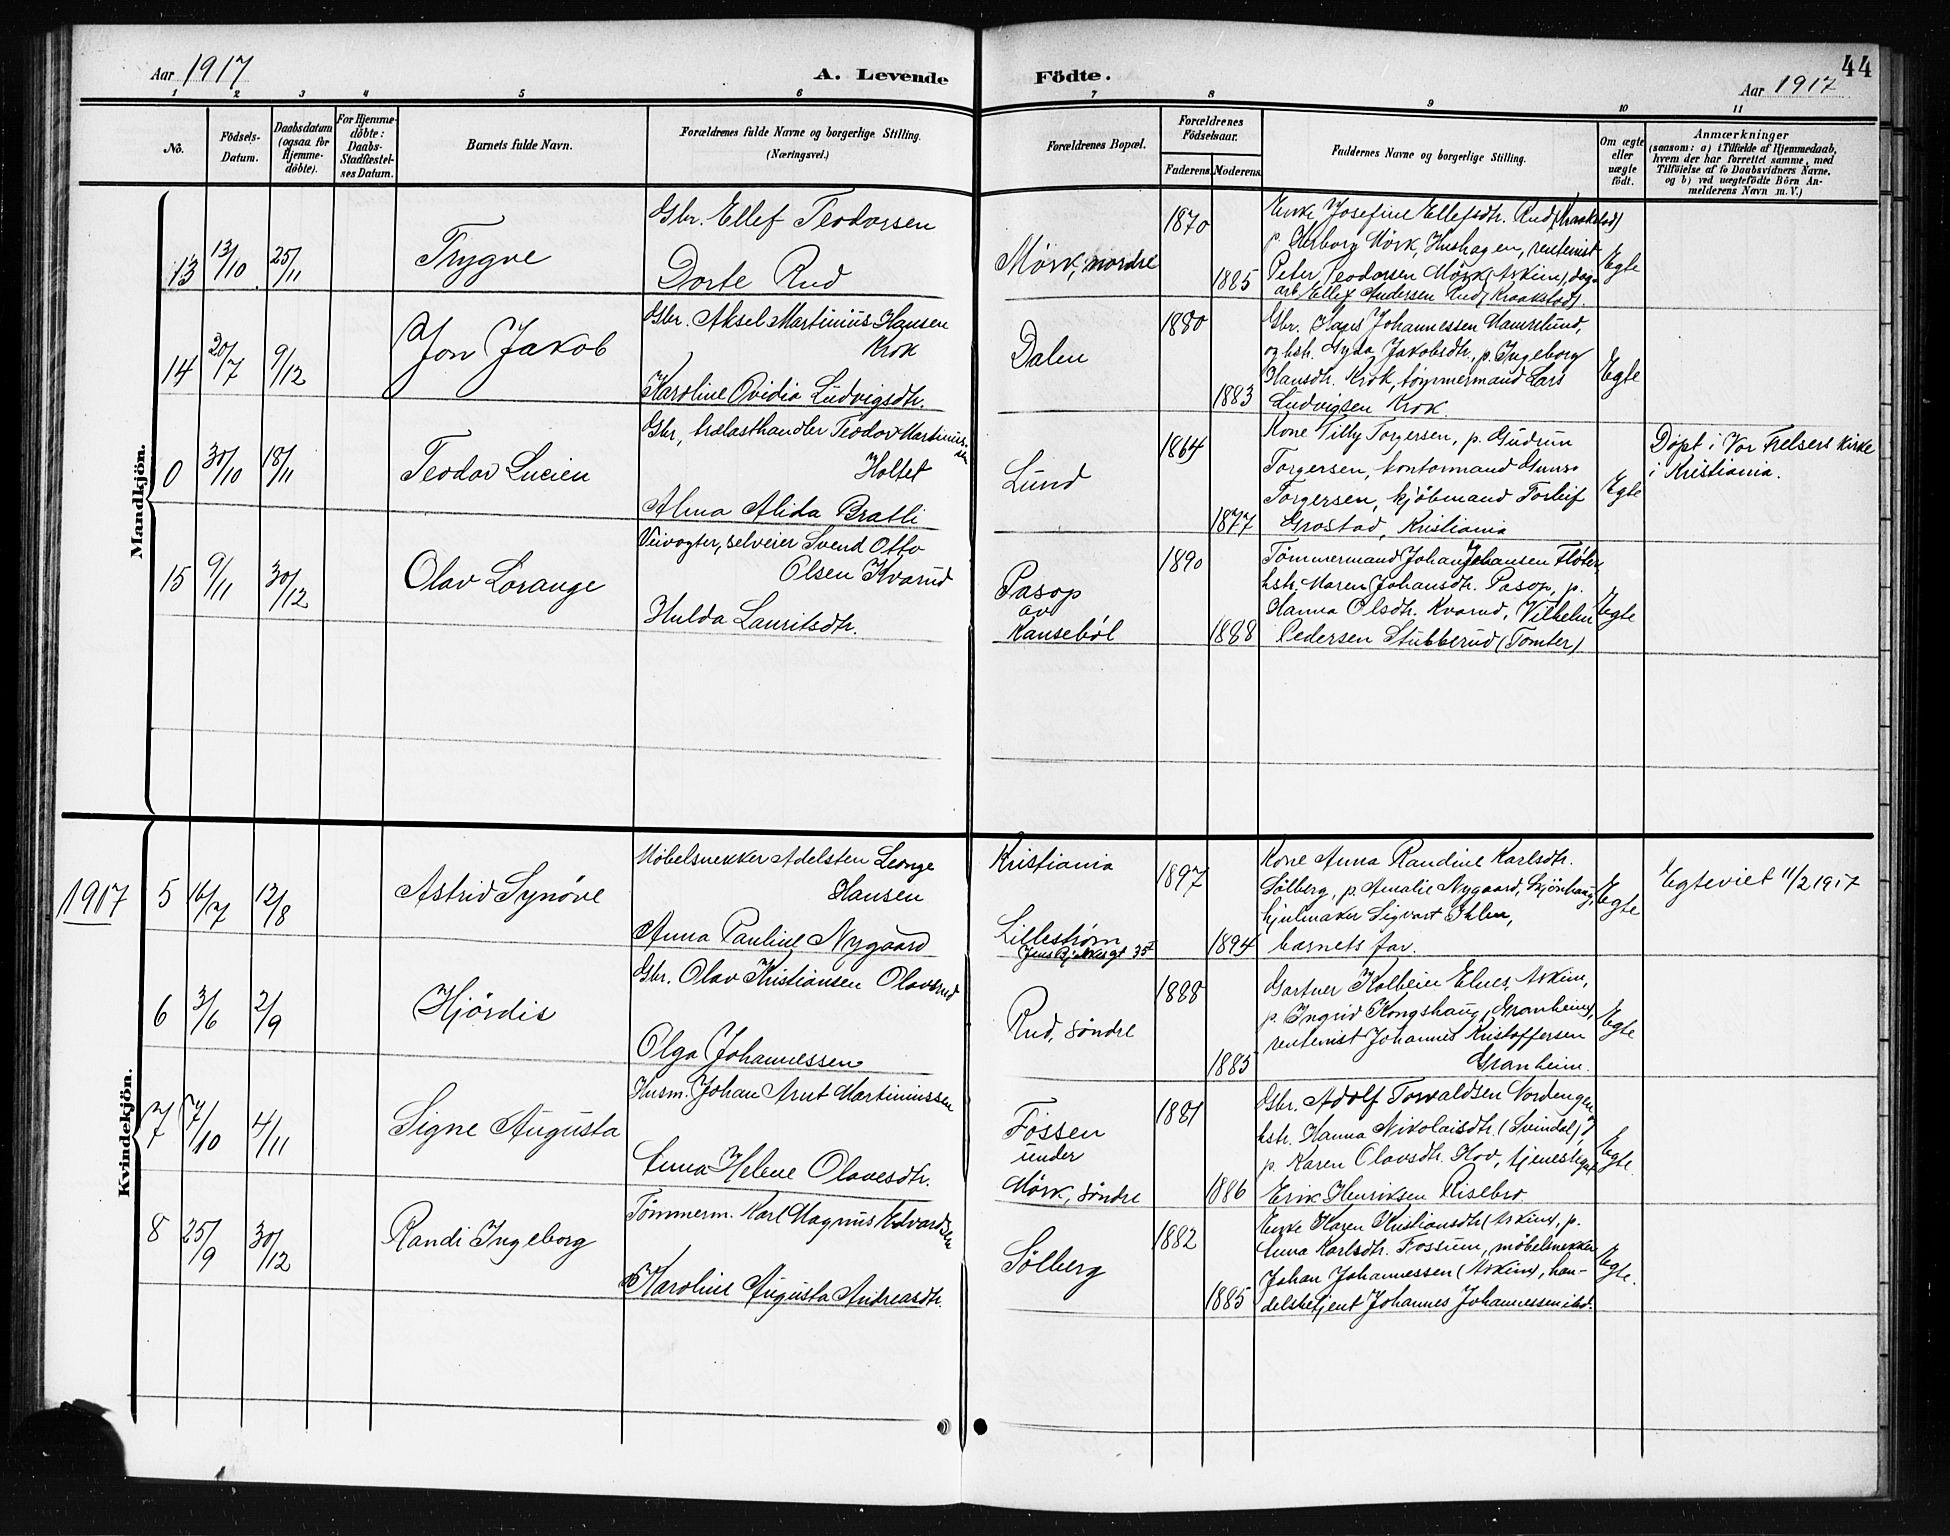 44
Aar 1917
A. Levende
Födte.
Aar 1917
1 2 3 4 5 6 7 8 9 10 11
No.
Födsels-
Datum.
Daabsdatum
(ogsaa for
Hjemme-
döbte).
For Hjemme-
döbte:
Daabs-
Stadfæstel-
ses Datum.
Barnets fulde Navn.
Forældrenes fulde Navne og borgerlige Stilling.
(Næringsvei.)
Forældrenes Bopæl.
Forældrenes
Födselsaar.
Faderens. Moderens.
Faddernes Navne og borgerlige Stilling.
Om ægte
eller
uægte
født.
Anmærkninger
(saasom: a) i Tilfælde af Hjemmedaab,
hvem der har forrettet samme, med
Tilföielse af to Daabsvidners Navne,
og b) ved uægtefödte Börn An-
melderens Navn m. V.)
Mandkjön.
13 13/10 25/11 Trygve
Gbr. Ellef Teodorsen
Dorte Rud
Mørk, nordre
1870
1885
Enke Josefine Ellefsdtr. Rud (Kraakstad)
p. Herborg Mørk, Hushagen, rentenist
Peter Teodorsen Mörk (Askim), dag-
arb. Ellef Andersen Rud, Kraakstad).
Egte
14 20/7 9/12 Jon Jakob
Gbr. Aksel Martinius Hansen
Krok
Karoline Ovidia Ludvigsdtr.
Dalen
1880
1883
Gbr. Hans Johannessen Hamrelund,
og hstr. Gyda Jakobsdtr., p. Ingeborg
Hansdtr. Krok, tømmermand Lars
Ludvigsen Krok.
Egte
0 30/10 18/11 Teodor Lucien
Gbr., trælasthandler Teodor Martinius-
sen
Holtet
Alma Alida Bratli
Lund
1864
1877
Kone Tilly Torgersen, p. Gudrun
Torgersen, kontormand Gunv.
Torgersen, kjöbmand Torleif
Grostad, Kristiania
Egte
Døpt i Vor Frelsers kirke
i Kristiania.
15 9/11 30/12 Olav Lorange
Veivogter, selveier Svend Otto
Olsen Kvarud
Hulda Lauritsdtr.
Pasop
av
Kansebøl
1890
1888
Tømmermand Johan Johansen Fløter,
hstr. Maren Johansdtr. Pasop, p.
Hanna Olsdtr. Kvarud, Vilhelm
Pedersen Stubberud (Tomter)
Egte
Kvindekjön.
1917
5 16/7 12/8 Astrid Synøve
Møbelsnekker Adelsten Leonge
Hansen
Anna Pauline Nygaard
Kristiania
Lillestrøm
1897
1894
Kone Anna Randine Karlsdtr.
Sölberg, p. Amalie Nygaard, Skjönhaug,
hjulmaker Sigvart Ihlen,
barnets far.
Egte
Egteviet 11/2 1917
6 3/6 2/9 Hjørdis
Gbr. Olav Kristiansen Olavsrud
Olga Johannessen
Rud, søndre
1888
1885
Gartner Kolbein Elnes, Askim,
p. Ingrid Kongshaug, Granheim),
rentenist Johannes Kristoffersen
Granheim.
Egte
7 7/10 4/11 Signe Augusta
Husm. Johan Arnt Martiniussen
Anna Helene Olavesdtr.
Fossen
under
Mørk, søndre
1881
1886
Gbr. Adolf Torvaldsen Nordengen
hstr. Hanna Nikolaisdtr. (Svindal),
p. Karen Olavsdtr. Hov, tjenestegut
Erik Henriksen Risebro
Egte
8 25/9 30/12 Randi Ingeborg
Tömmerm. Karl Magnus Edvardsen
Karoline Augusta Andreasdtr.
Sølberg
1882
1885
Enke Karen Kristiansdtr (Askim), p.
Anna Karlsdtr. Fossum, møbelsnekker
Johan Johannessen (Askim), han-
delsbetjent Johannes Johannessen ibd.
Egte.